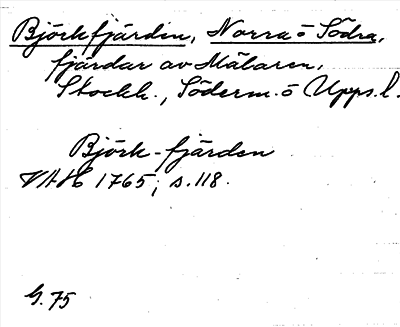 Björkfjärden, Norra o Södra,
fjärdar av Mälaren,
Stockh., Söderm. o Upps. l.
Björk-fjärden
VAH 1765, s. 118.
G. 75